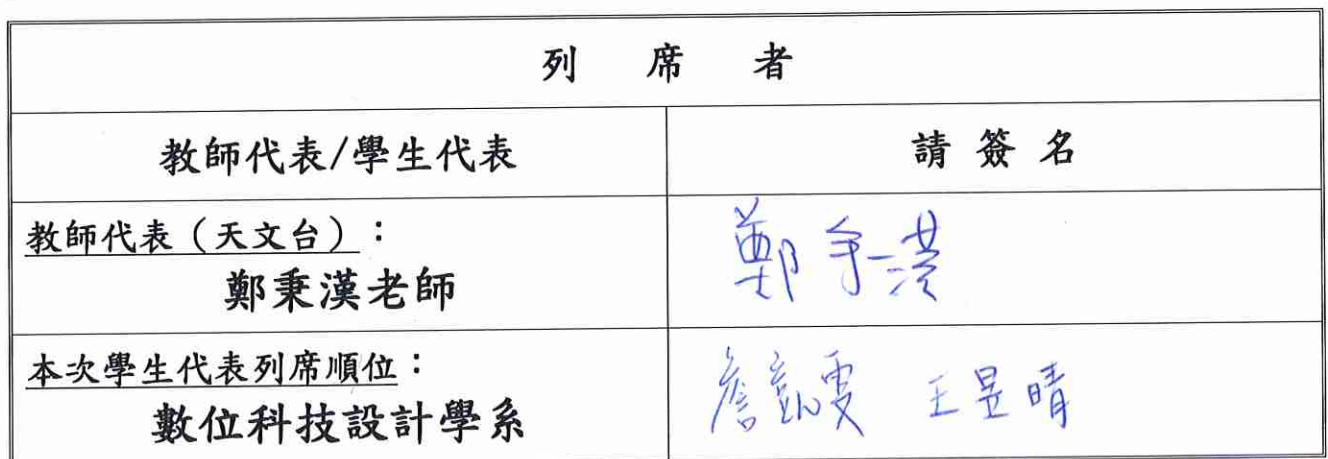 列席者
教師代表/學生代表
請簽名
教師代表（天文台）：
鄭秉漢老師
鄭秉漢
本次學生代表列席順位：
數位科技設計學系
詹凱雯 王昱晴